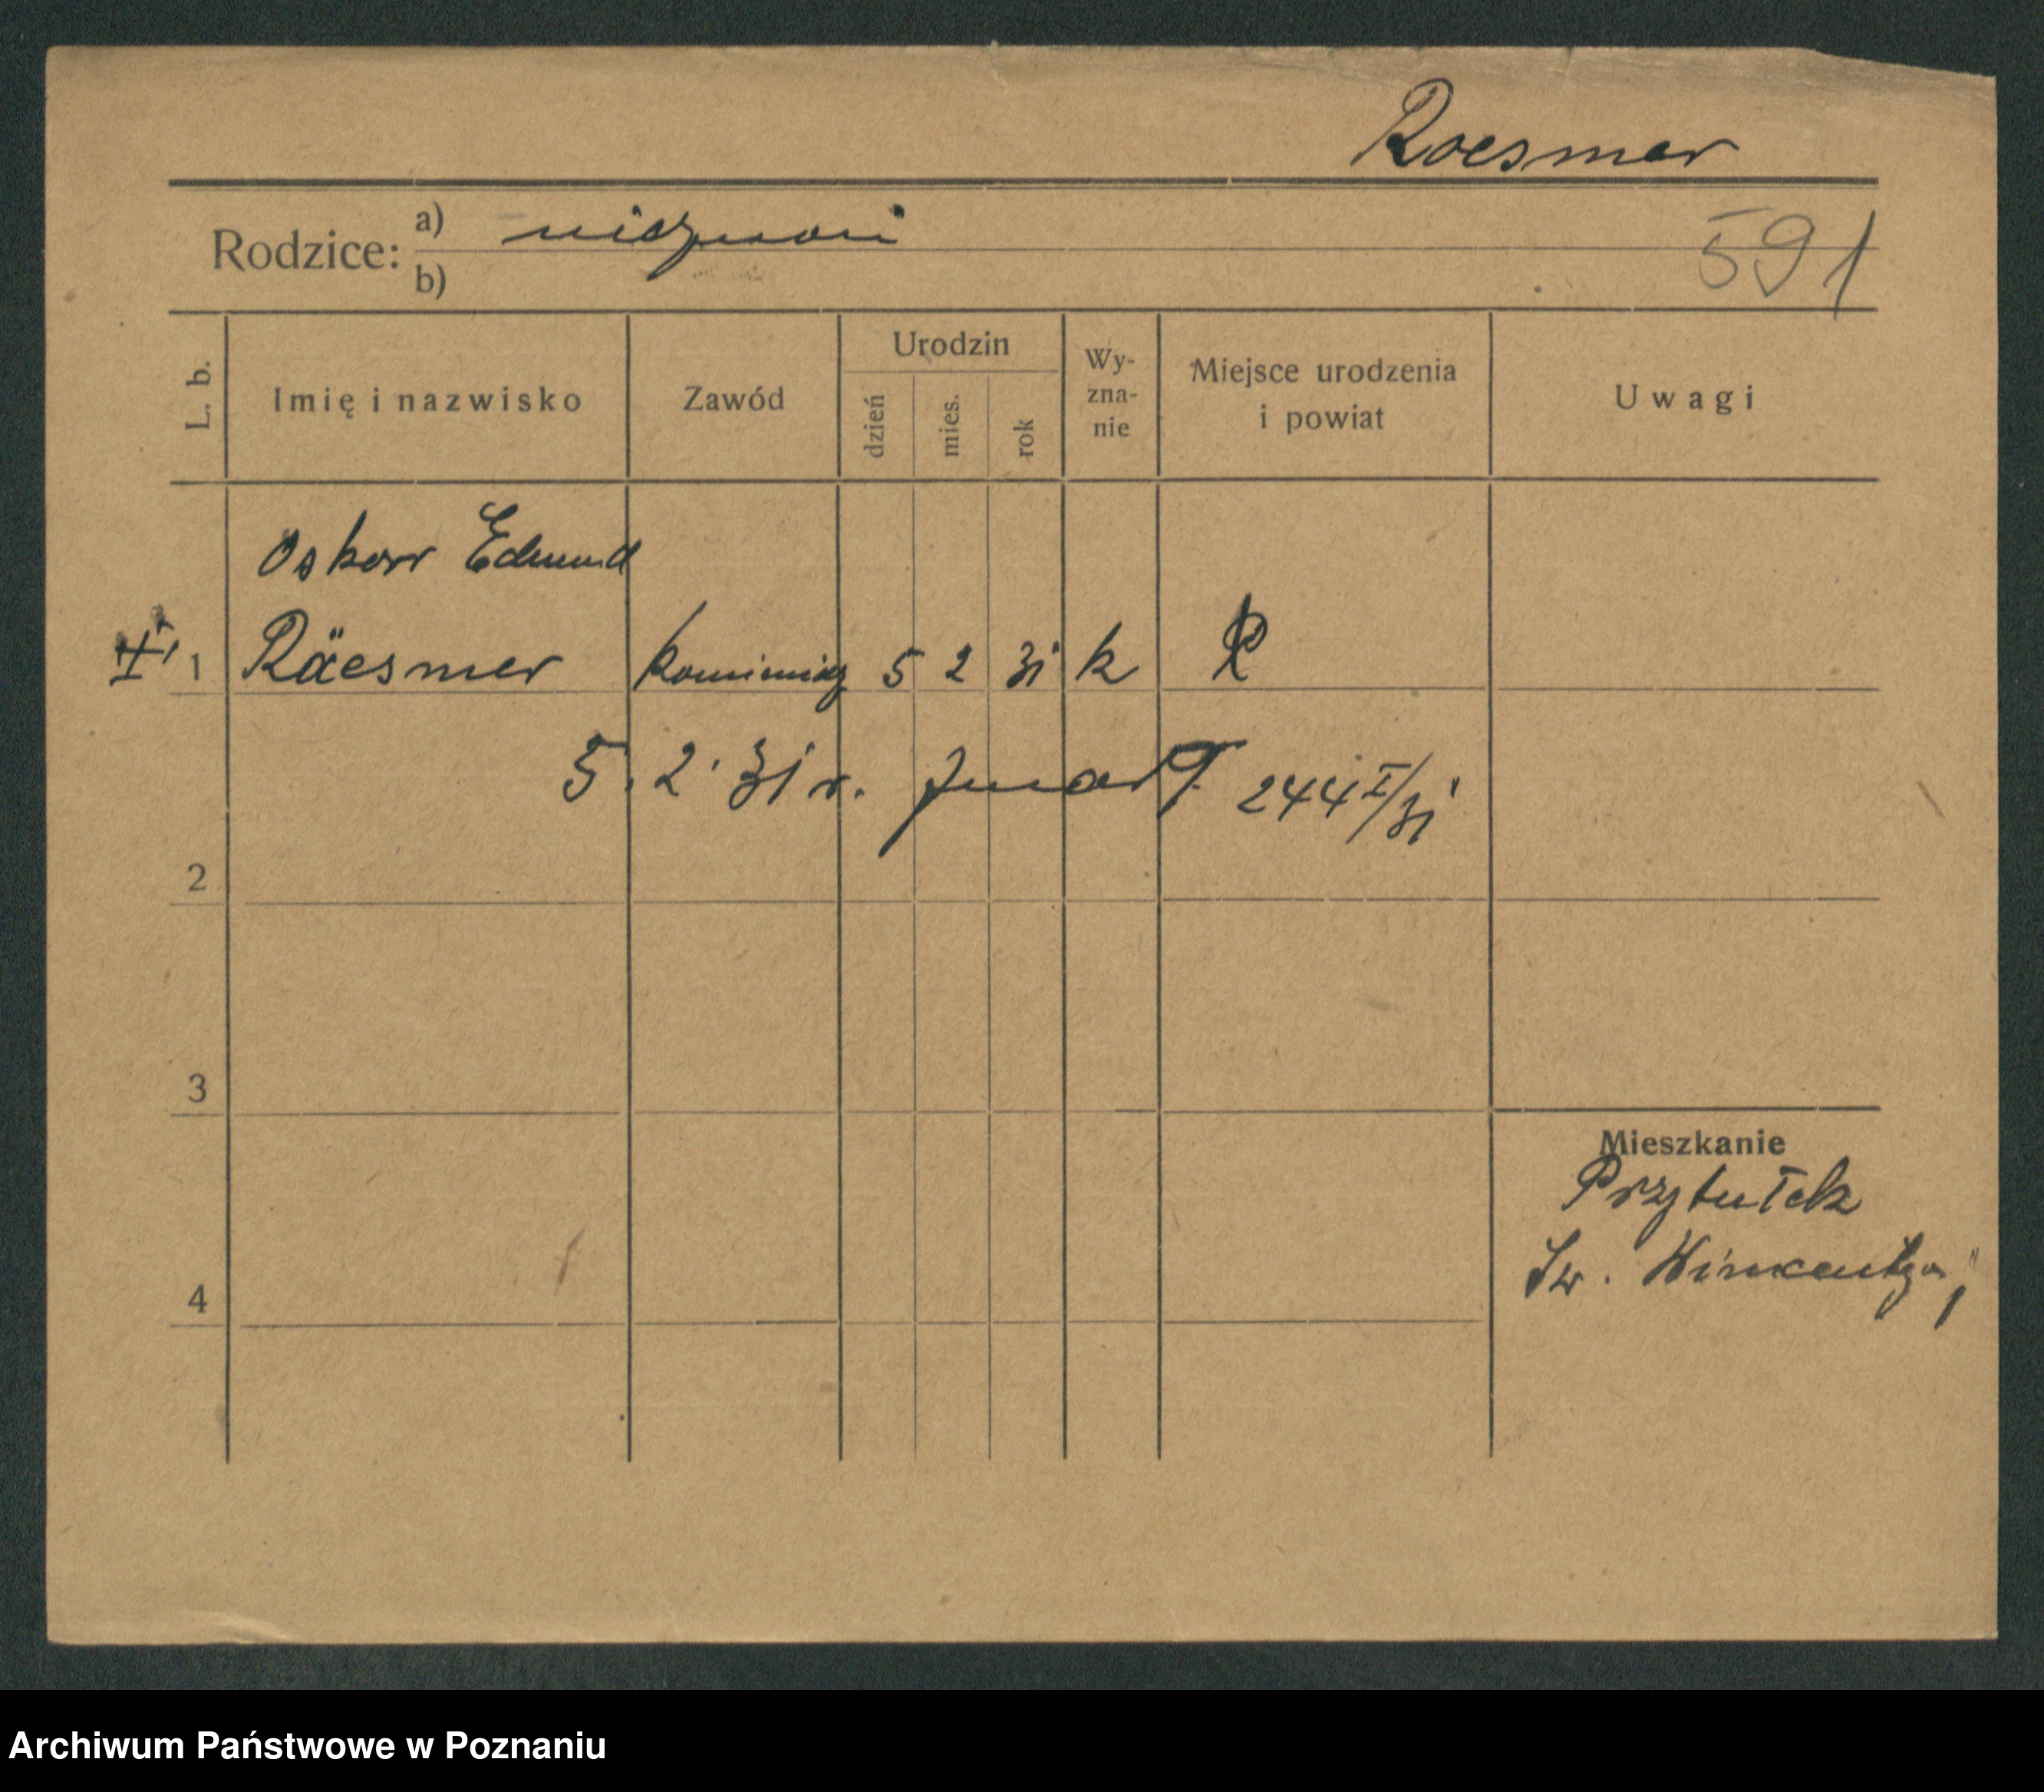 Roesmer
Rodzice: a) nieznani
b)
591
L. b.
Imię i nazwisko
Zawód
Urodzin
dzień
mies.
rok
Wy-
zna-
nie
Miejsce urodzenia
i powiat
Uwagi
Oskar Edmund
1 Räesmer 5 2 31 k
5. 2. 31 r. zmarł 244 I/31
2
3
4
Mieszkanie
Przytułek
Św. Winxentego
Archiwum Państwowe w Poznaniu